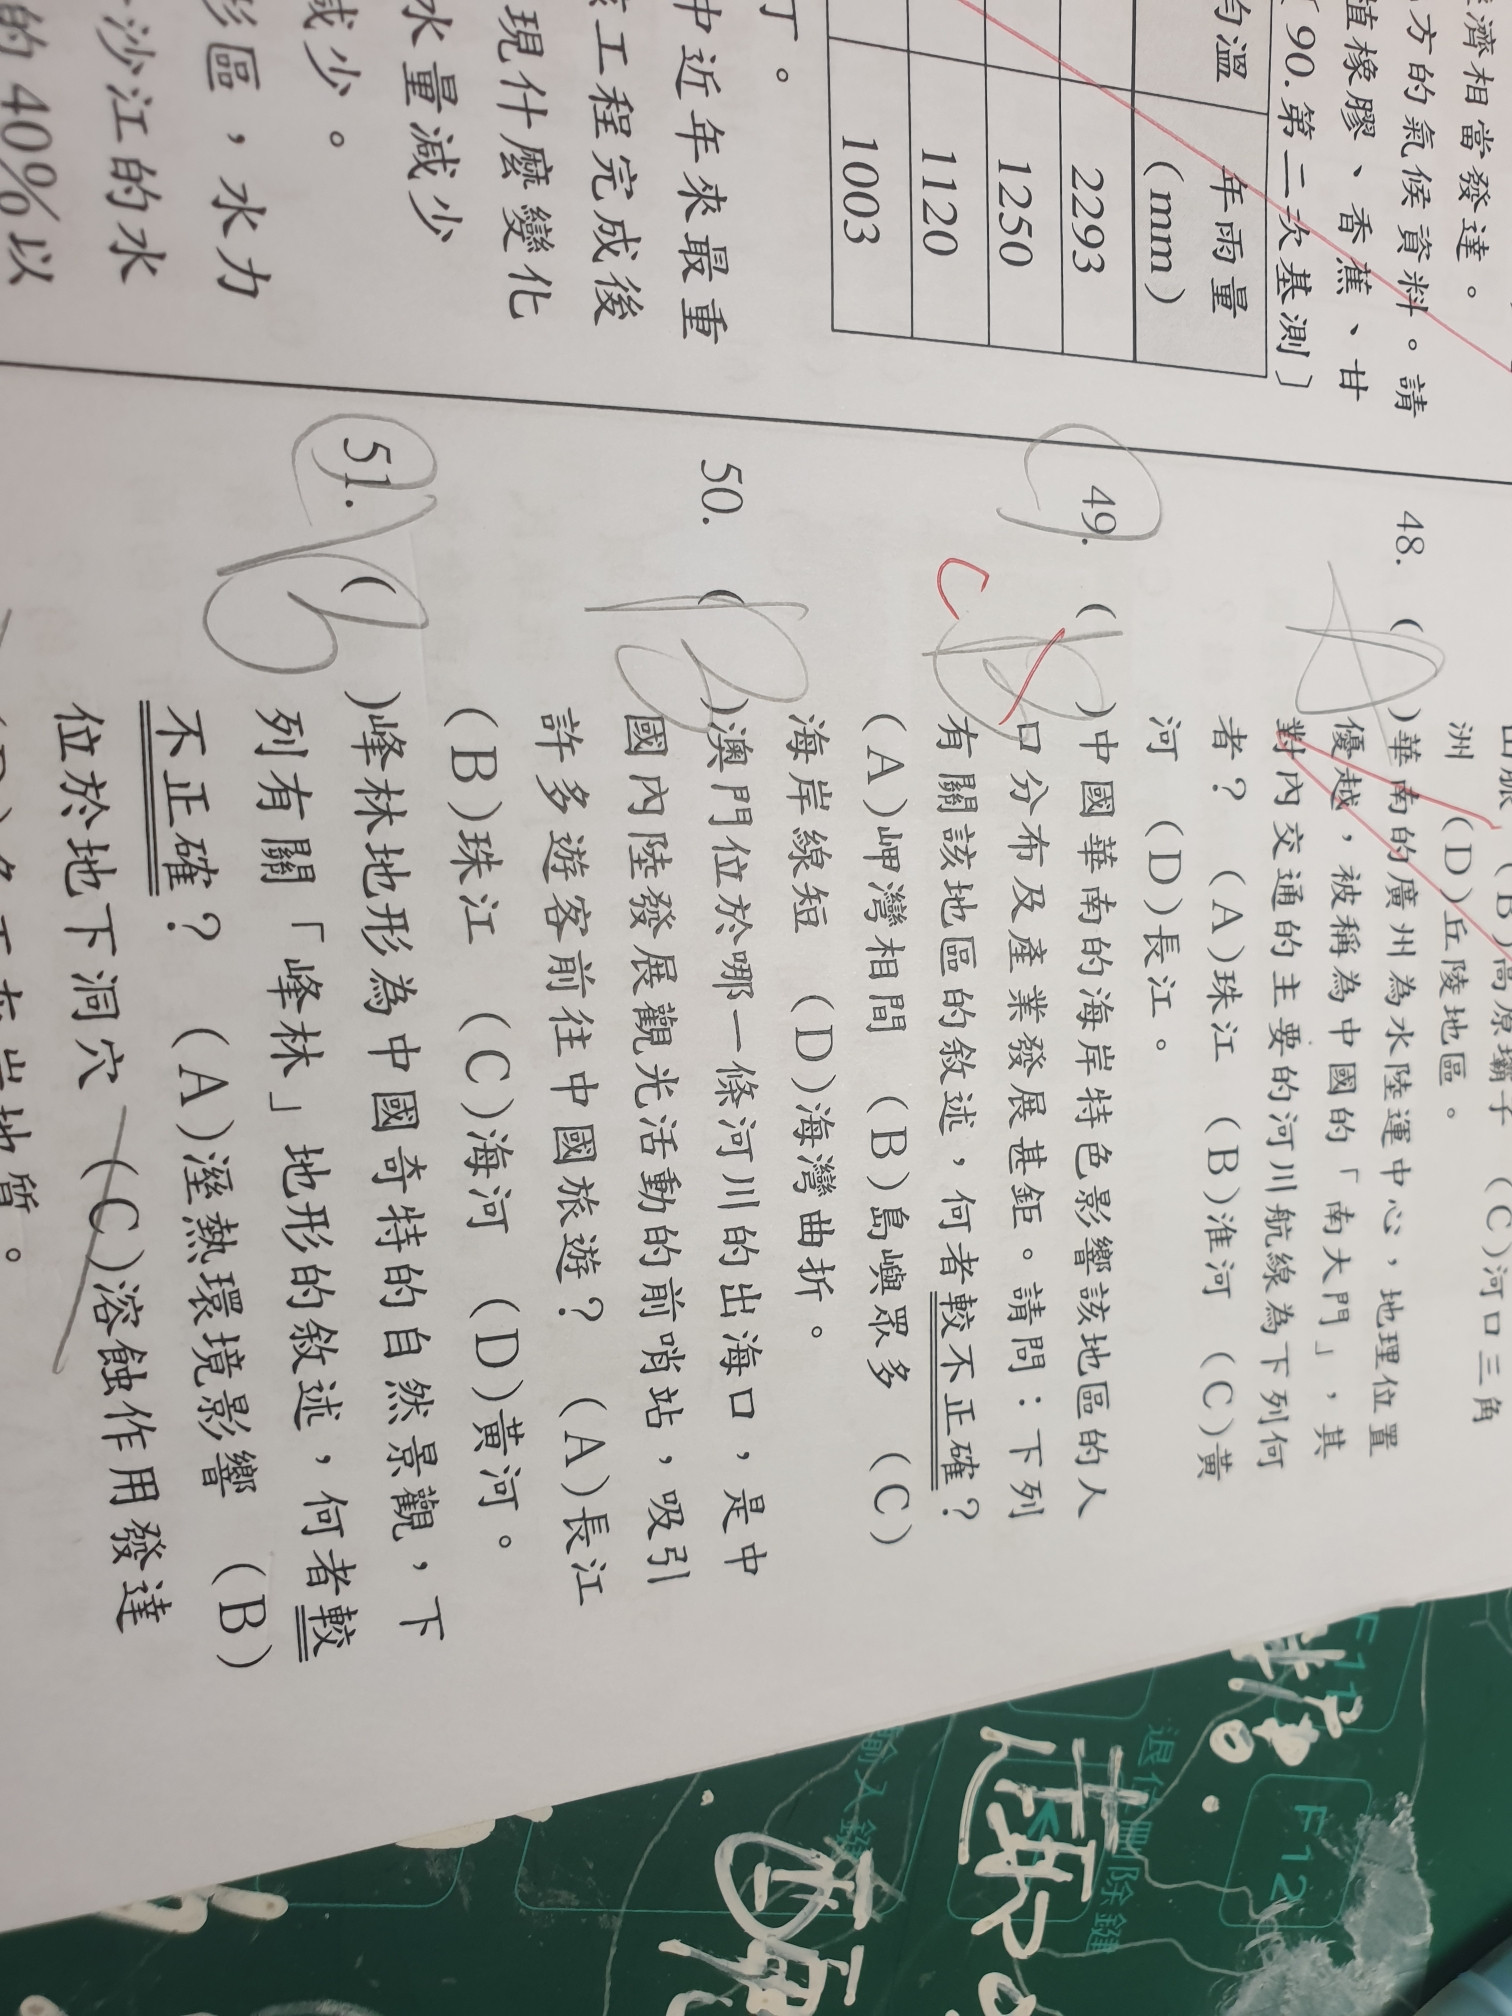 濟相當發達。
方的氣候資料。請
植橡膠、香蕉、甘
〔90.第二次基測〕
均溫
年雨量
(mm)
2293
1250
1120
1003
丁。
中近年來最重
工程完成後
現什麼變化
水量減少
減少。
彭區，水力
沙江的水
的40%以
(B)高原壩子 (C)河口三角
洲 (D)丘陵地區。
48. ( A )華南的廣州為水陸運中心，地理位置
優越，被稱為中國的「南大門」，其
對內交通的主要的河川航線為下列何
者？ (A)珠江 (B)淮河 (C)黃
河 (D)長江。
49. ( B )中國華南的海岸特色影響該地區的人
C
口分布及產業發展甚鉅。請問：下列
有關該地區的敘述，何者較不正確？
(A)岬灣相間 (B)島嶼眾多 (C)
海岸線短 (D)海灣曲折。
50. ( B )澳門位於哪一條河川的出海口，是中
國內陸發展觀光活動的前哨站，吸引
許多遊客前往中國旅遊？ (A)長江
(B)珠江 (C)海河 (D)黃河。
51. ( B )峰林地形為中國奇特的自然景觀，下
列有關「峰林」地形的敘述，何者較
不正確？ (A)溼熱環境影響 (B)
位於地下洞穴 (C)溶蝕作用發達
F11
F12
退位刪除鍵
輸入鍵